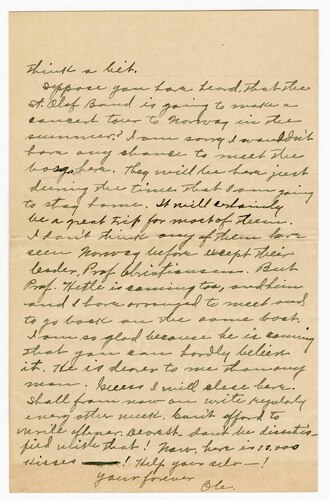 think a bit.
Suppose you has heard, that the
St. Olaf Band is going to make a
concert tour to Norway in the
summer? I am sorry I wouldn't
have any chance to meet the
boys here. They will be here just
during the time that I am going
to stay home. It will certainly
be a great trip for most of them.
I don't think any of them have
seen Norway before except their
leader, Prof. Christiansen. But
Prof. Kittle is coming too, and him
and I have arranged to meet and
to go back on the same boat.
I am so glad because he is coming
that you can hardly beleev
it. He is dearer to me than any
man. Guess I will close here.
Shall from now on write regulaly
every other week. Can't afford to
write oftener. Don't be dissatis-
fied with that! Now, here is 10,000
kisses ! Help your self — !
Your forever
Ole.